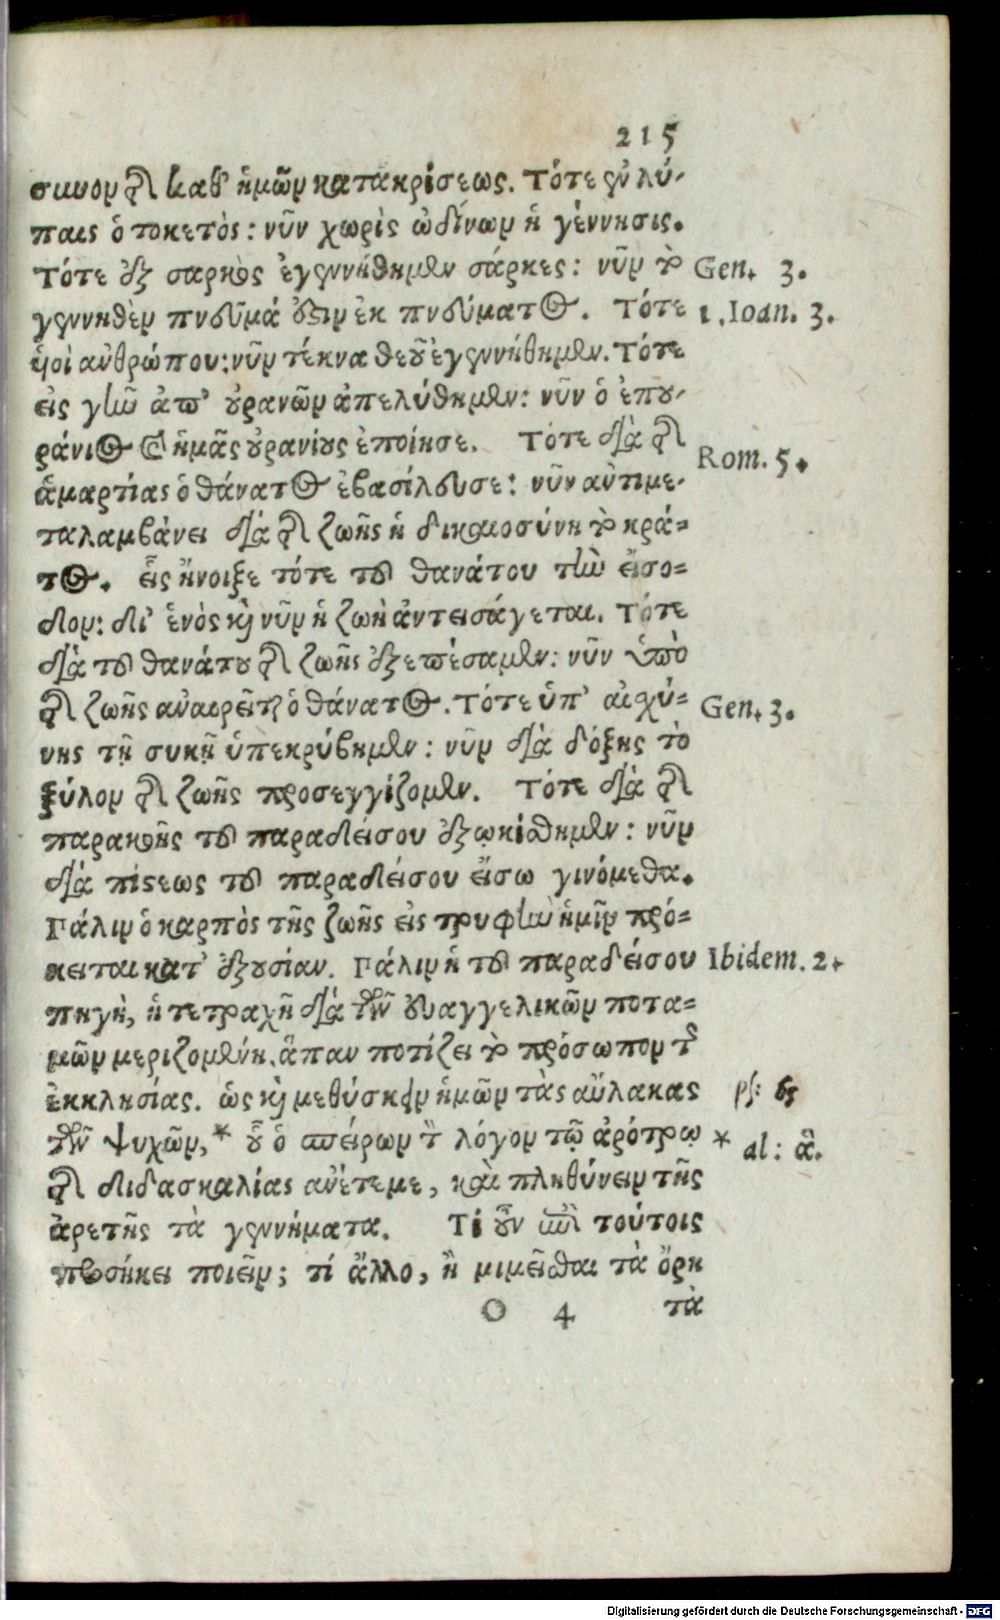 215
συνον τῆς καθ' ἡμῶν κατακρίσεως. Τότε ἐν λύ-
παις ὁ τοκετὸς: νῦν χωρὶς ὠδίνων ἡ γέννησις.
Τότε ἐκ σαρκὸς ἐγεννήθημεν σάρκες: νῦν τὸ
Gen. 3.
γεννηθὲν πνεῦμά ἐστιν ἐκ πνεύματος. Τότε
1. Ioan. 3.
ὑιοὶ ἀνθρώπου: νῦν τέκνα θεοῦ ἐγεννήθημεν. Τότε
εἰς γῆν ἀπ' οὐρανῶν ἀπελύθημεν: νῦν ὁ ἐπου-
ράνιος καὶ ἡμᾶς οὐρανίους ἐποίησε. Τότε διὰ τῆς
Rom. 5.
ἁμαρτίας ὁ θάνατος ἐβασίλευσε: νῦν ἀντιμε-
ταλαμβάνει διὰ τῆς ζωῆς ἡ δικαιοσύνη τὸ κρά-
τος. εἷς ἤνοιξε τότε τοῦ θανάτου τὴν εἴσο-
δον: δι' ἑνὸς καὶ νῦν ἡ ζωὴ ἀντεισάγεται. Τότε
διὰ τοῦ θανάτου τῆς ζωῆς ἐξεπέσαμεν: νῦν ὑπὸ
τῆς ζωῆς ἀναιρεῖται ὁ θάνατος. Τότε ὑπ' αἰσχύ-
Gen. 3.
νης τῇ συκῇ ὑπεκρύβημεν: νῦν διὰ δόξης τὸ
ξύλον τῆς ζωῆς προσεγγίζομεν. Τότε διὰ τῆς
παρακοῆς τοῦ παραδείσου ἐξῳκίσθημεν: νῦν
διὰ πίστεως τοῦ παραδείσου εἴσω γινόμεθα.
Πάλιν ὁ καρπὸς τῆς ζωῆς εἰς τρυφὴν ἡμῖν πρό-
κειται κατ' ἐξουσίαν. Πάλιν ἡ τοῦ παραδείσου
Ibidem. 2.
πηγὴ, ἡ τετραχῆ διὰ τῶν εὐαγγελικῶν ποτα-
μῶν μεριζομένη, ἅπαν ποτίζει τὸ πρόσωπον τῆς
ἐκκλησίας. ὡς καὶ μεθύσκειν ἡμῶν τὰς αὔλακας
ps: 65
τῶν ψυχῶν, * οὗ ὁ σπείρων τὸν λόγον τῷ ἀρότρῳ
* al: ἃ.
τῆς διδασκαλίας ἀνέτεμε, καὶ πληθύνειν τῆς
ἀρετῆς τὰ γεννήματα. Τί οὖν ἐπὶ τούτοις
προσήκει ποιεῖν; τί ἄλλο, ἢ μιμεῖσθαι τὰ ὄρη
O 4 τὰ
Digitalisierung gefördert durch die Deutsche Forschungsgemeinschaft - DFG